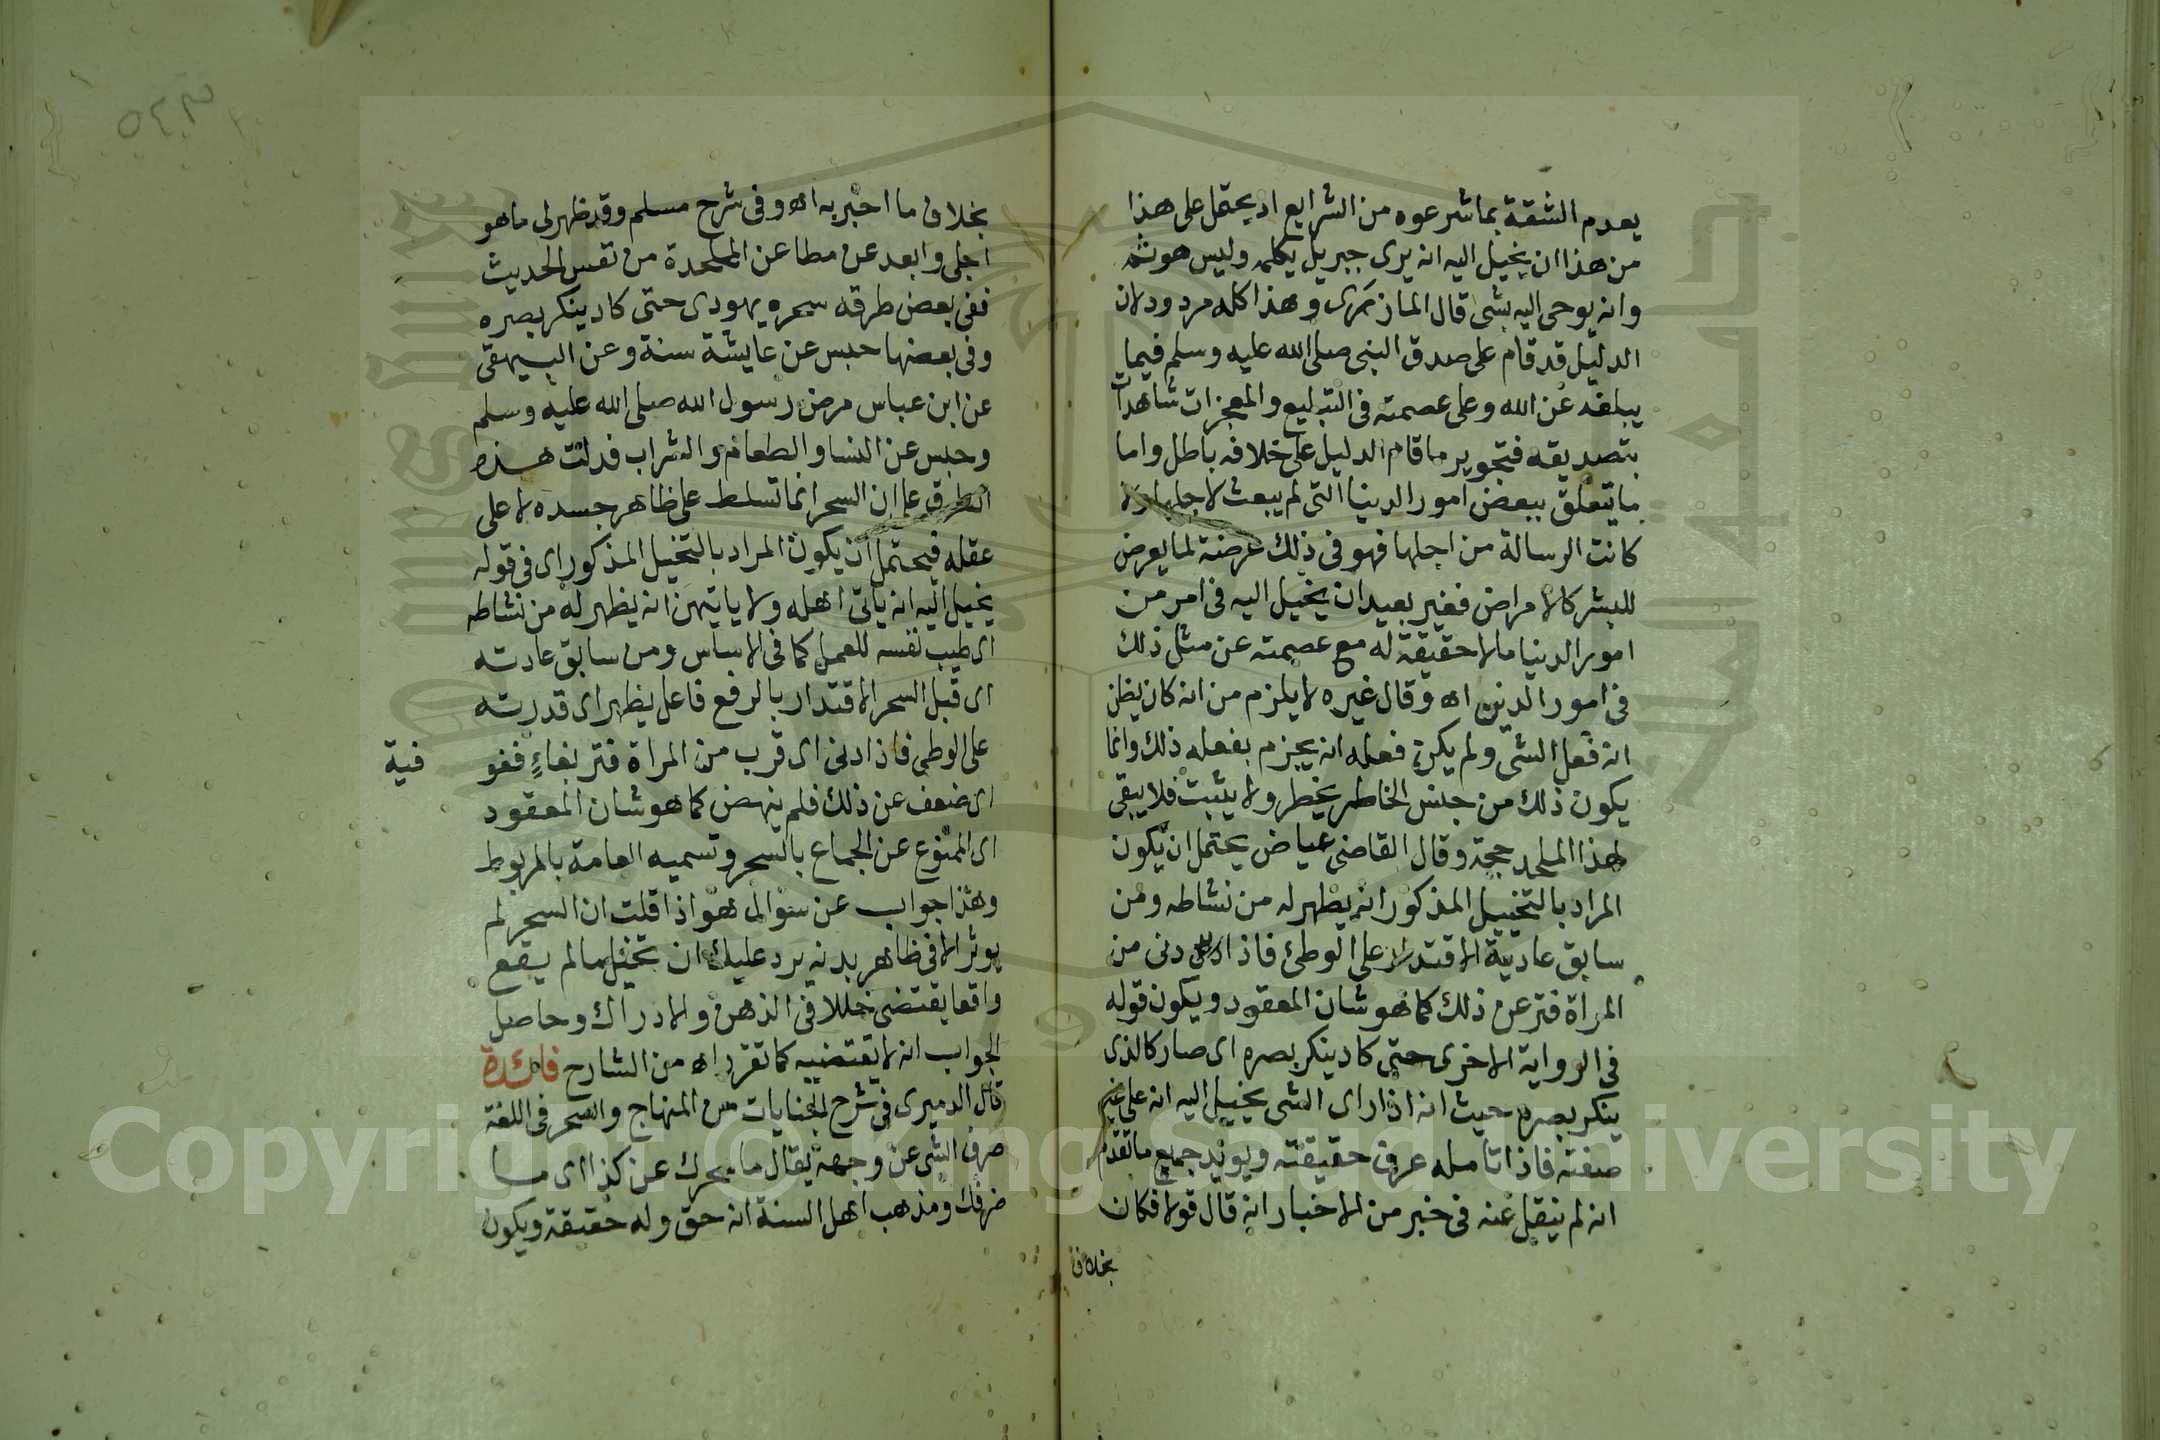 يعدم الشقة بما شرعوه من الشرايع اد يحتمل على هذا
من هذا ان يخيل اليه انه يرى جبريل يكلمه وليس هو ثمه
وانه يوحى اليه بشى قال المازرى وهذا كله مردود لان
الدليل قد قام على صدق النبى صلى الله عليه وسلم فيما
يبلغه عن الله وعلى عصمته فى التبليغ والمعجزات شاهدات
بتصديقه فتجويز ما قام الدليل على خلافه باطل واما
ما يتعلق ببعض امور الدنيا التى لم يبعث لاجلها ولا
كانت الرسالة من اجلها فهو فى ذلك عرضة لما يعرض
للبشر كالامراض فغير بعيد ان يخيل اليه فى امر من
امور الدنيا مالا حقيقة له مع عصمته عن مثل ذلك
فى امور الدين اه وقال غيره لا يلزم من انه كان يظن
انه فعل الشى ولم يكن فعله انه يجزم بفعله ذلك وانما
يكون ذلك من جنس الخاطر يخطر ولا يثبت فلا يبقى
لهذا الملحد حجة وقال القاضى عياض يحتمل ان يكون
المراد بالتخييل المذكور انه يظهر له من نشاطه ومن
سابق عادية الاقتدار على الوطئ فاذا دنى من
المراة فتر عن ذلك كما هو شان المعقود ويكون قوله
فى الرواية الاخرى حتى كاد ينكر بصره اى صار كالذى
ينكر بصره حيث انه اذا راى الشى يخيل اليه انه على غير
صفته فاذا تامله عرف حقيقته ويويد جميع ما تقدم
انه لم ينقل عنه فى خبر من الاخبار انه قال قولا فكان
بخلاف
بخلاف ما اخبر به اه وفى شرح مسلم وقد ظهر لى ما هو
اجلى وابعد عن مطاعن الملحدة من نفس الحديث
ففى بعض طرقه سحره يهودى حتى كاد ينكر بصره
وفى بعضها حبس عن عايشة سنة وعن البيهقى
عن ابن عباس مرض رسول الله صلى الله عليه وسلم
وحبس عن النسا والطعام والشراب فدلت هذه
الطرق على ان السحر انما تسلط على ظاهر جسده لا على
عقله فيحتمل ان يكون المراد بالتخيل المذكور اى فى قوله
يخيل اليه انه ياتى اهله ولا ياتيهن انه يظهر له من نشاطه
اى طيب نفسه للعمل كما فى الاساس ومن سابق عادته
اى قبل السحر الاقتدار بالرفع فاعل يظهر اى قدرته
على الوطى فاذا دنى اى قرب من المراة فتر بفاءٍ ففو
فية
اى ضعف عن ذلك فلم ينهض كما هو شان المعقود
اى الممنوع عن الجماع بالسحر وتسميه العامة بالمربوط
وهذا جواب عن سوال هو اذا قلت ان السحر لم
يوثر الا فى ظاهر بدنه يرد عليك ان تخيل ما لم يقع
واقعا يقتضى خللا فى الذهن والادراك وحاصل
الجواب انه لا يقتضيه كما تقرر اه من الشارح فائدة
قال الدميرى فى شرح الجنايات من المنهاج والسحر فى اللغة
صرف الشى عن وجهه يقال ما سحرك عن كذا اى ما
صرفك ومذهب اهل السنة انه حق وله حقيقة ويكون
Copyright © King Saud University